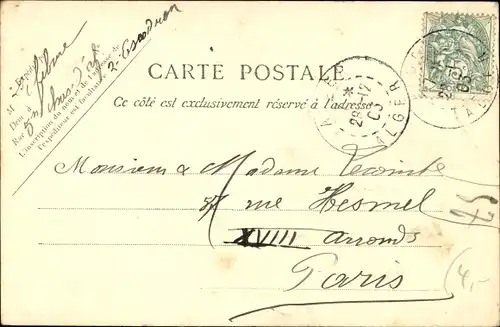 M Exp
Lefebvre
Dem. à
Rue 5me chas. d'af.
2e Escadron
L'inscription du nom et de l'adresse de
l'expéditeur est facultative
CARTE POSTALE.
Ce côté est exclusivement réservé à l'adresse
28 12
03
ALGER
Monsieur & Madame Lecomte
rue Hermel
XVIII arrondt
Paris
75
4,-